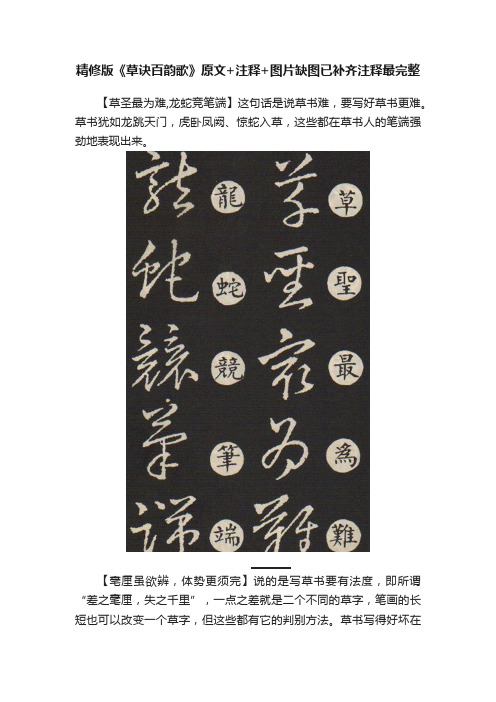 精修版《草诀百韵歌》原文+注释+图片缺图已补齐注释最完整
【草圣最为难,龙蛇竞笔端】这句话是说草书难，要写好草书更难。
草书犹如龙跳天门，虎卧凤阙、惊蛇入草，这些都在草书人的笔端强
劲地表现出来。
草聖最為難
草聖最為難
龍蛇競筆端
龍蛇競筆端
【毫厘虽欲辨，体势更须完】说的是写草书要有法度，即所谓
“差之毫厘，失之千里”，一点之差就是二个不同的草字，笔画的长
短也可以改变一个草字，但这些都有它的判别方法。草书写得好坏在